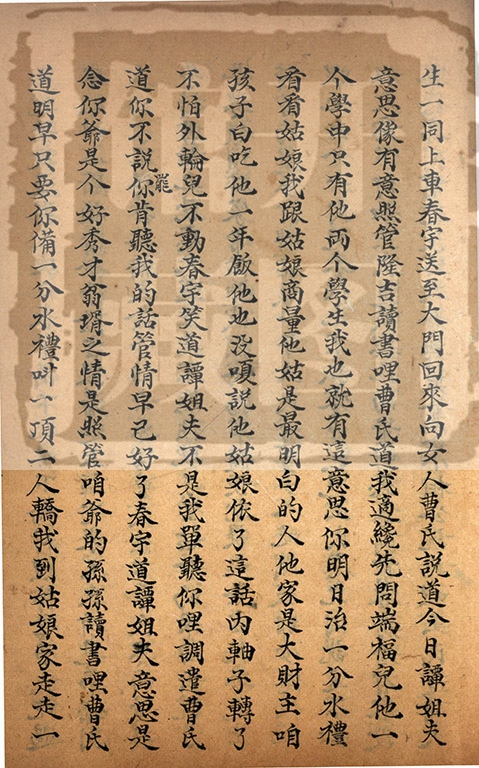 生一同上車春宇送至大門回來向女人曹氏説道今日譚姐夫
意思像有意照管隆吉讀書哩曹氏道我適纔先問端福兒他一
个學中只有他両个學生我也就有這意思你明日治一分水禮
看看姑娘我跟姑娘商量他姑是最明白的人他家是大財主咱
孩子白吃他一年飯他也没嗄説他姑娘依了這話内軸子轉了
不怕外輪兒不動春宇笑道譚姐夫不是我單聽你哩調遣曹氏
道你不説你罷肯聽我的話管情早已好了春宇道譚姐夫意思是
念你爺是个好秀才翁壻之情是照管咱爺的孫孫讀書哩曹氏
道明早只要你備一分水禮叫一頂二人轎我到姑娘家走走一